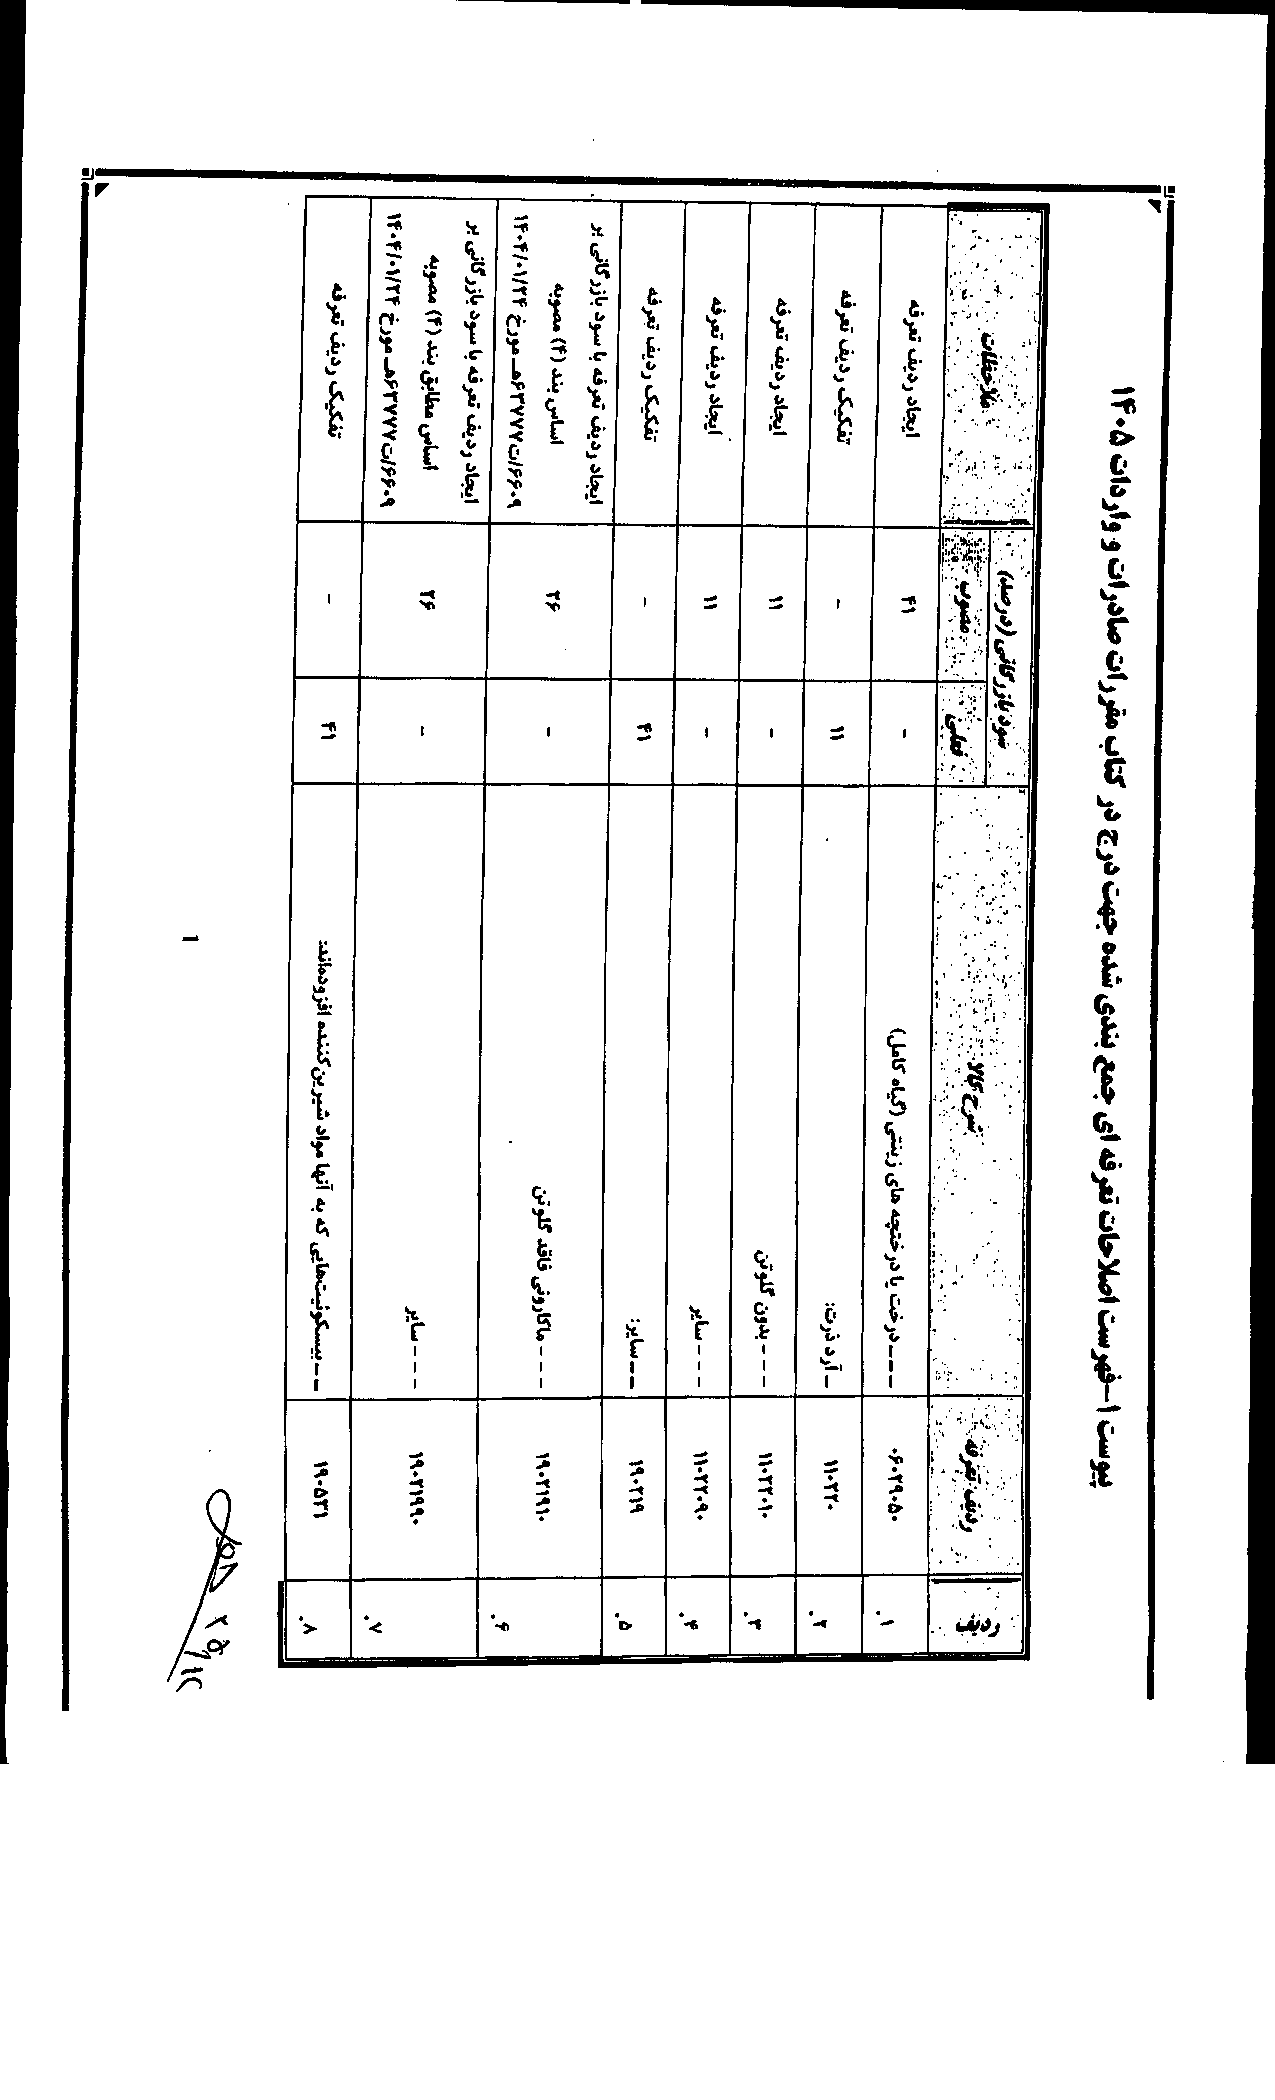 پیوست ۱-فهرست اصلاحات تعرفه ای جمع بندی شده جهت درج در کتاب مقررات صادرات و واردات ۱۴۰۵
ردیف ردیف تعرفه شرح کالا سود بازرگانی (درصد) ملاحظات
فعلی مصوب
۱. ۰۶۰۲۹۰۵۰ ---درخت یا درختچه های زینتی (گیاه کامل) - ۴۱ ایجاد ردیف تعرفه
۲. ۱۱۰۲۲۰ -آرد ذرت: ۱۱ - تفکیک ردیف تعرفه
۳. ۱۱۰۲۲۰۱۰ ---بدون گلوتن - ۱۱ ایجاد ردیف تعرفه
۴. ۱۱۰۲۲۰۹۰ ---سایر - ۱۱ ایجاد ردیف تعرفه
۵. ۱۹۰۲۱۹ --سایر: ۴۱ - تفکیک ردیف تعرفه
۶. ۱۹۰۲۱۹۱۰ ---ماکارونی فاقد گلوتن - ۲۶ ایجاد ردیف تعرفه با سود بازرگانی بر
اساس بند (۴) مصوبه
۶۶۰۹/ت۶۳۷۷۷هـ مورخ ۱۴۰۴/۰۱/۲۴
۷. ۱۹۰۲۱۹۹۰ ---سایر - ۲۶ ایجاد ردیف تعرفه با سود بازرگانی بر
اساس مطابق بند (۴) مصوبه
۶۶۰۹/ت۶۳۷۷۷هـ مورخ ۱۴۰۴/۰۱/۲۴
۸. ۱۹۰۵۳۱ --بیسکوئیت‌هایی که به آنها مواد شیرین‌کننده افزوده‌اند: ۴۱ - تفکیک ردیف تعرفه
۱